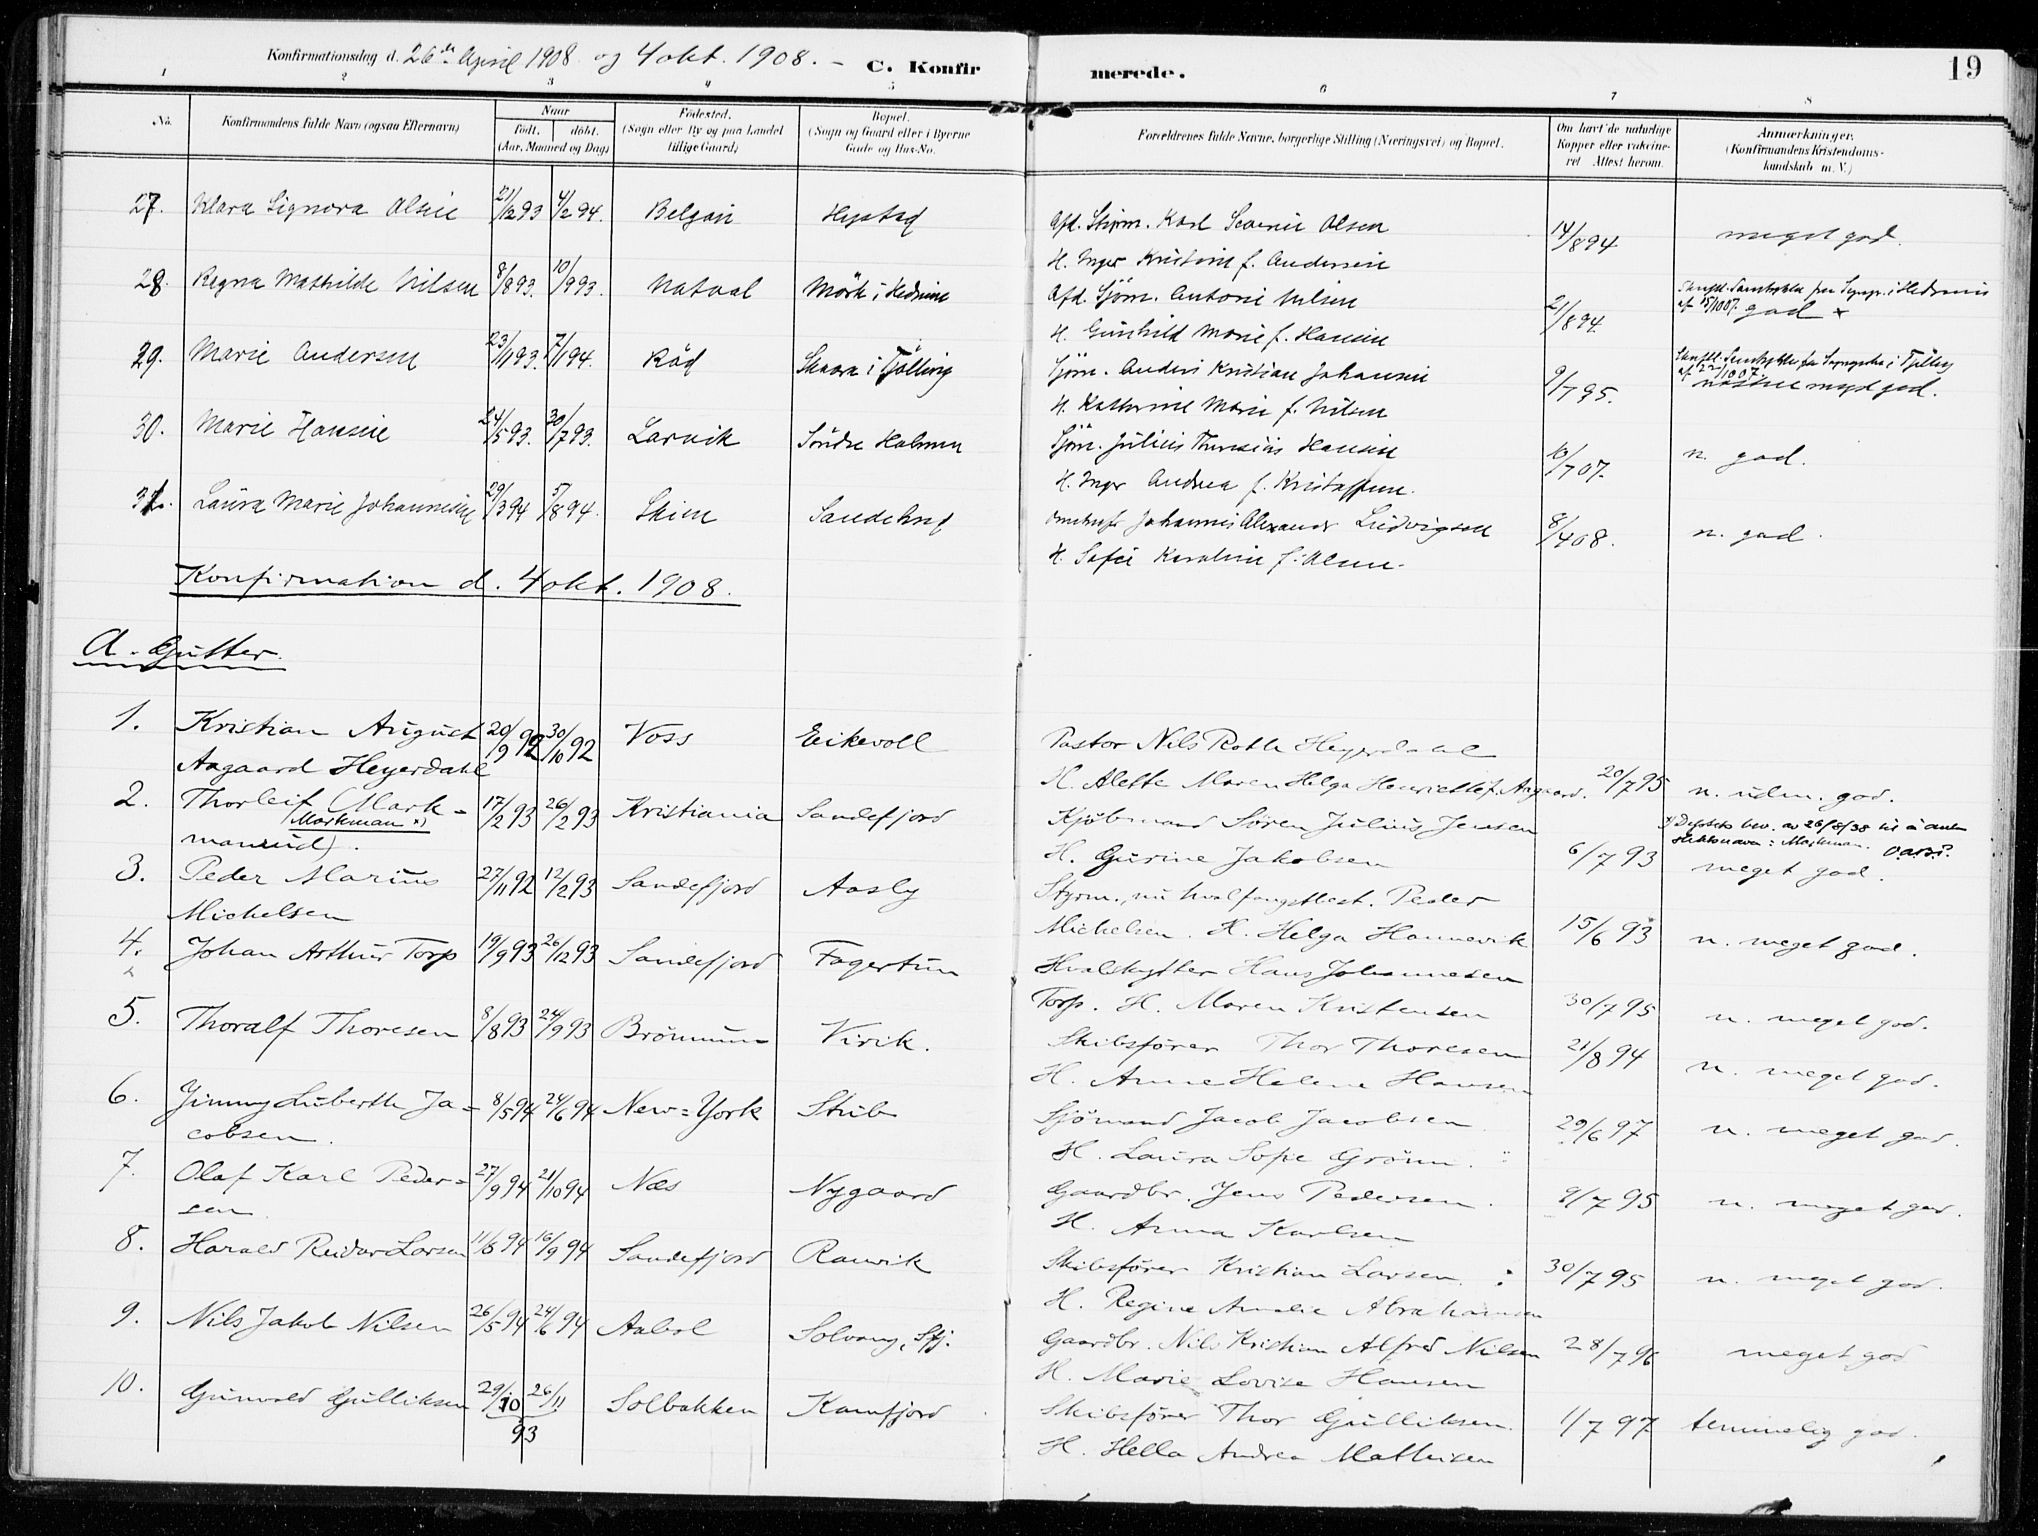 Konfirmationsdag d. 26de April 1908 og 4 okt. 1908. – C. Konfir
merede.
19
1 2 3 4 5 6 7 8
No.
Konfirmandens fulde Navn (ogsaa Efternavn)
Naar
født. døbt.
(Aar, Maaned og Dag)
Fødested.
(Sogn eller By og paa Landet
tillige Gaard)
Bopæl.
(Sogn og Gaard eller i Byerne
Gade og Hus-No.
Forældrenes fulde Navne, borgerlige Stilling (Næringsvei) og Bopæl.
Om havt de naturlige
Kopper eller vakcine-
ret. Attest herom.
Anmærkninger.
(Konfirmandens Kristendoms-
kundskab m. V.)
27. Klara Signora Olsen 21/12 93 4/2 94. Hystad Afd. Skipm. Karl Severin Olsen 14/8 94 meget god.
H. Inger Kristine f. Andersen
28. Ragna Mathilde Nilsen 8/8 93. 10/9 93. Natval Mörk i Hedrum Afd. Sjöm. Anton Nilsen 21/8 94. god x
H. Gunhild Marie f. Hansen
29. Marie Andersen 23/11 93. 7/1 94. Röd Skaara i Tjölling Sjöm. Anders Kristian Johansen 9/7 95. næsten meget god.
H. Kathrine Marie f. Nilsen
30. Marie Hansen 24/5 93. 30/7 93. Larvik Söndre Holmen Sjöm. Julius Hansen 10/7 07. n. god.
H. Inger Andrea f. Kristoffersen.
31. Laura Marie Johannesen 29/3 94 5/8 94. Skien Johannes Alexander Ludvigsen 8/4 08. n. god.
H. Sofie Karoline f. Olsen.
Konfirmation d. 4 okt. 1908.
A. Gutter.
1. Kristian August 20/9 92 30/10 92 Voss Eikevoll Pastor Nils Rotte Heyerdahl
Aagaard Heyerdahl H. Alette Maren Helga Henriette f. Aagaard. 20/7 95 n. udm. god.
2. Thorleif (Mark- 17/2 93 26/2 93 Kristiania Sandefjord Kjöbmand Sören Julius Jensen
Markman x)
x) Depts bev. av 26/8/38 til å anta
slektsnavn: Markman.
manrud). H. Gurine Jakobsen 6/7 93 meget god.
3. Peder Marius 27/11 92 12/2 93 Sandefjord Aasly Styrm., nu hvalfangstbest. Peder
Michelsen Michelsen. H. Helga Hannevik 15/6 93 n. meget god.
4. Johan Arthur Torp 19/9 93 26/12 93 Sandefjord Fagertun Hvalskytter Hans Johannesen
Torp. H. Maren Kristensen 30/7 95 n. meget god.
5. Thoralf Thoresen 8/8 93 24/9 93 Virik. Skibsförer Thor Thoresen 21/8 94 n. meget god.
H. Anne Helene Hansen
6. Jimmy Luberth Ja- 8/5 94 24/6 94 New=York Stub Sjömand Jacob Jacobsen 29/6 97 n. meget god.
cobsen. H. Laura Sofie Grönn.
7. Olaf Karl Peder- 27/9 94 21/10 94 Næs Nygaard Gaardbr. Jens Pedersen. 9/7 95 n. meget god.
sen H. Anna Karlsen
8. Harald Reidar Larsen 11/8 94 16/9 94 Sandefjord Ranvik Skibsförer Kristian Larsen. 30/7 95 n. meget god.
H. Regine Amalie Abrahamsen
9. Nils Jakob Nilsen 26/5 94 24/6 94 Aabol Solvang, Sfj. Gaardbr. Nils Kristian Alfred Nilsen 28/7 96 meget god
H. Marie Lovise Hansen
10. Gunvald Gulliksen 29/10 26/11 93 Solbakken Kamfjord Skibsförer Thor Gulliksen. 1/7 97 temmelig god.
H. Hella Andrea Mathisen